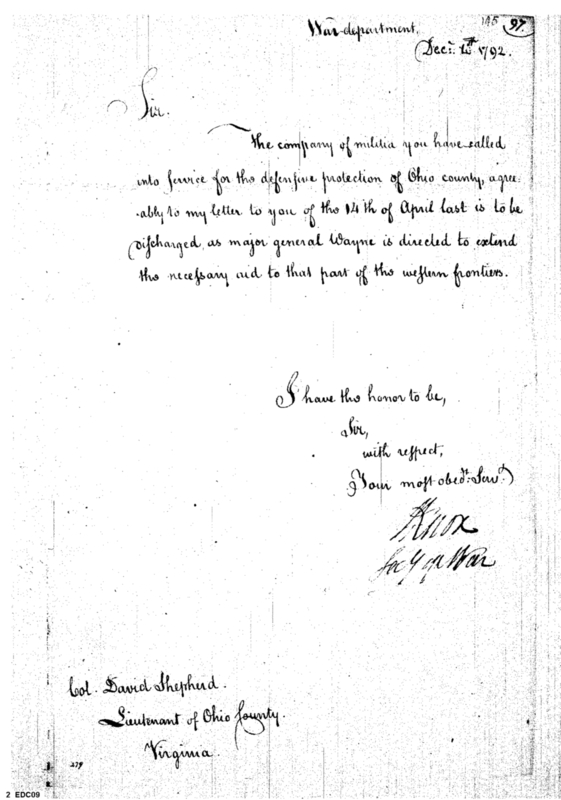 War department,
Decr. 1st 1792.
97.
Sir.
The company of militia you have called
into service for the defensive protection of Ohio county, agree-
ably to my letter to you of the 14th of April last is to be
Discharged, as major general Wayne is directed to extend
the necessary aid to that part of the western frontiers.
I have the honor to be,
Sir,
with respect,
Your most obedt. Servt.
HKnox
Secy of War
Col. David Shepherd.
Lieutenant of Ohio County.
Virginia.
279
2 EDC09